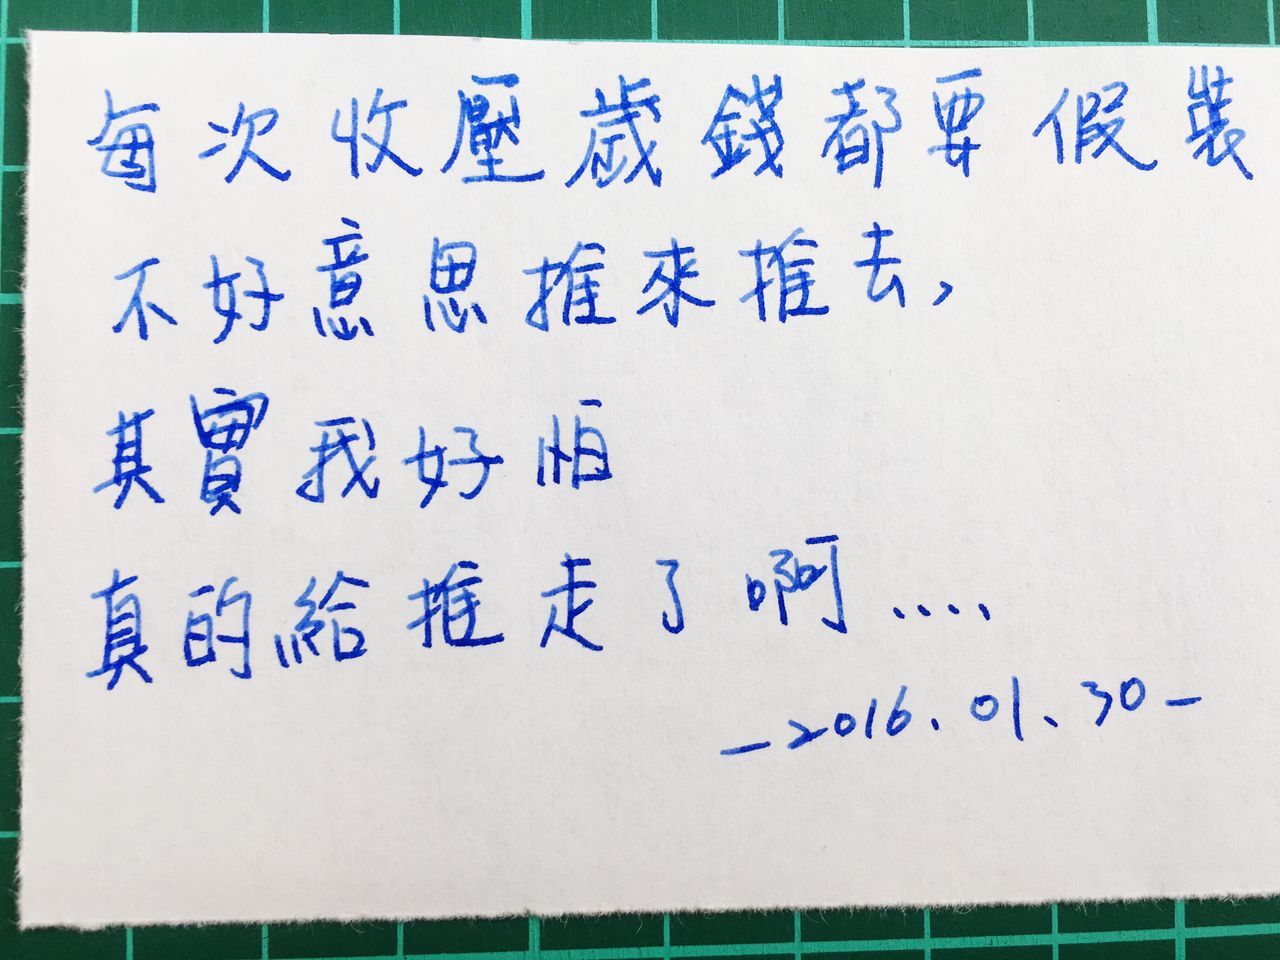 每次收壓歲錢都要假裝
不好意思推來推去,
其實我好怕
真的給推走了啊....
-2016.01.30-